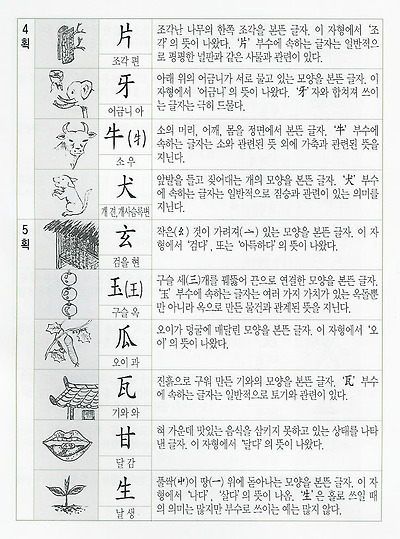 4
획
片
조각 편
조각난 나무의 한쪽 조각을 본뜬 글자. 이 자형에서 '조
각'의 뜻이 나왔다. '片' 부수에 속하는 글자는 일반적으
로 평평한 널판과 같은 사물과 관련이 있다.
牙
어금니 아
아래 위의 어금니가 서로 물고 있는 모양을 본뜬 글자. 이
자형에서 '어금니'의 뜻이 나왔다. '牙'자와 합쳐져 쓰이
는 글자는 극히 드물다.
牛(牜)
소 우
소의 머리, 어깨, 몸을 정면에서 본뜬 글자. '牛' 부수에
속하는 글자는 소와 관련된 뜻 외에 가축과 관련된 뜻을
지닌다.
犬
개 견, 개사슴록변
앞발을 들고 짖어대는 개의 모양을 본뜬 글자. '犬' 부수
에 속하는 글자는 일반적으로 짐승과 관련이 있는 의미를
지닌다.
5
획
玄
검을 현
작은(幺) 것이 가려져(亠) 있는 모양을 본뜬 글자. 이 자
형에서 '검다', 또는 '아득하다'의 뜻이 나왔다.
玉(王)
구슬 옥
구슬 세(三)개를 꿰뚫어 끈으로 연결한 모양을 본뜬 글자.
'玉' 부수에 속하는 글자는 여러 가지 가치가 있는 옥돌뿐
만 아니라 옥으로 만든 물건과 관계된 뜻을 지닌다.
瓜
오이 과
오이가 덩굴에 매달린 모양을 본뜬 글자. 이 자형에서 '오
이'의 뜻이 나왔다.
瓦
기와 와
진흙으로 구워 만든 기와의 모양을 본뜬 글자. '瓦' 부수
에 속하는 글자는 일반적으로 토기와 관련이 있다.
甘
달 감
혀 가운데 맛있는 음식을 삼키지 못하고 있는 상태를 나타
낸 글자. 이 자형에서 '달다'의 뜻이 나왔다.
生
날 생
풀싹(屮)이 땅(一) 위에 돋아나는 모양을 본뜬 글자. 이 자
형에서 '나다', '살다'의 뜻이 나옴. '生'은 홀로 쓰일 때
의 의미는 많지만 부수로 쓰이는 예는 많지 않다.